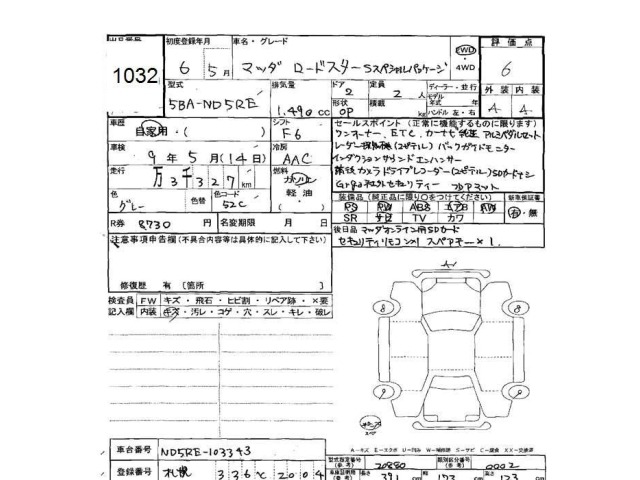 1032
初度登録年月
6年5月
車名・グレード
マツダ ロードスター Sスペシャルパッケージ
FWD
4WD
評価点
6
型式
5BA-ND5RE
排気量
1.490cc
ドア
2
形状
OP
定員
2人
積載
kg
ディーラー・並行
モデル
年式 年
ハンドル 左・右
外装 内装
A A
車歴
自家用・( )
シフト
F6
車検
9年5月(14日)
冷房
AAC
走行
万3千327km
燃料
ガソリン
軽油
色
グレー
色替
色コード
52C
R券 8,730円
名変期限 月 日
セールスポイント (正常に機能するものに限ります)
ワンオーナー、ETC、カーナビ
アルミペダルセット
バックガイドモニター
インダクションサウンドエンハンサー
カメラドライブレコーダー
フロアマット
装備品(純正品に限り○をつけてください)
新車保証書
PS PW ABS エアB AW
SR サビ TV カワ
有・無
後日品 マツダオンライン用SDカード
セキュリティリモコン×1 スペアキー×1.
注意事項申告欄(不具合内容等は具体的に記入して下さい)
修復歴 有 [箇所 ]
検査員記入欄
FW キズ・飛石・ヒビ割・リペア跡・×要
内装 キズ・汚レ・コゲ・穴・スレ・キレ・破レ
A
8 8
9 9
車台番号 ND5RE-103343
登録番号 札幌 336 く 2004
型式指定番号
(参考)
20880
類別区分番号
(参考)
0002
長さ 391cm 幅 173cm 高さ 123cm